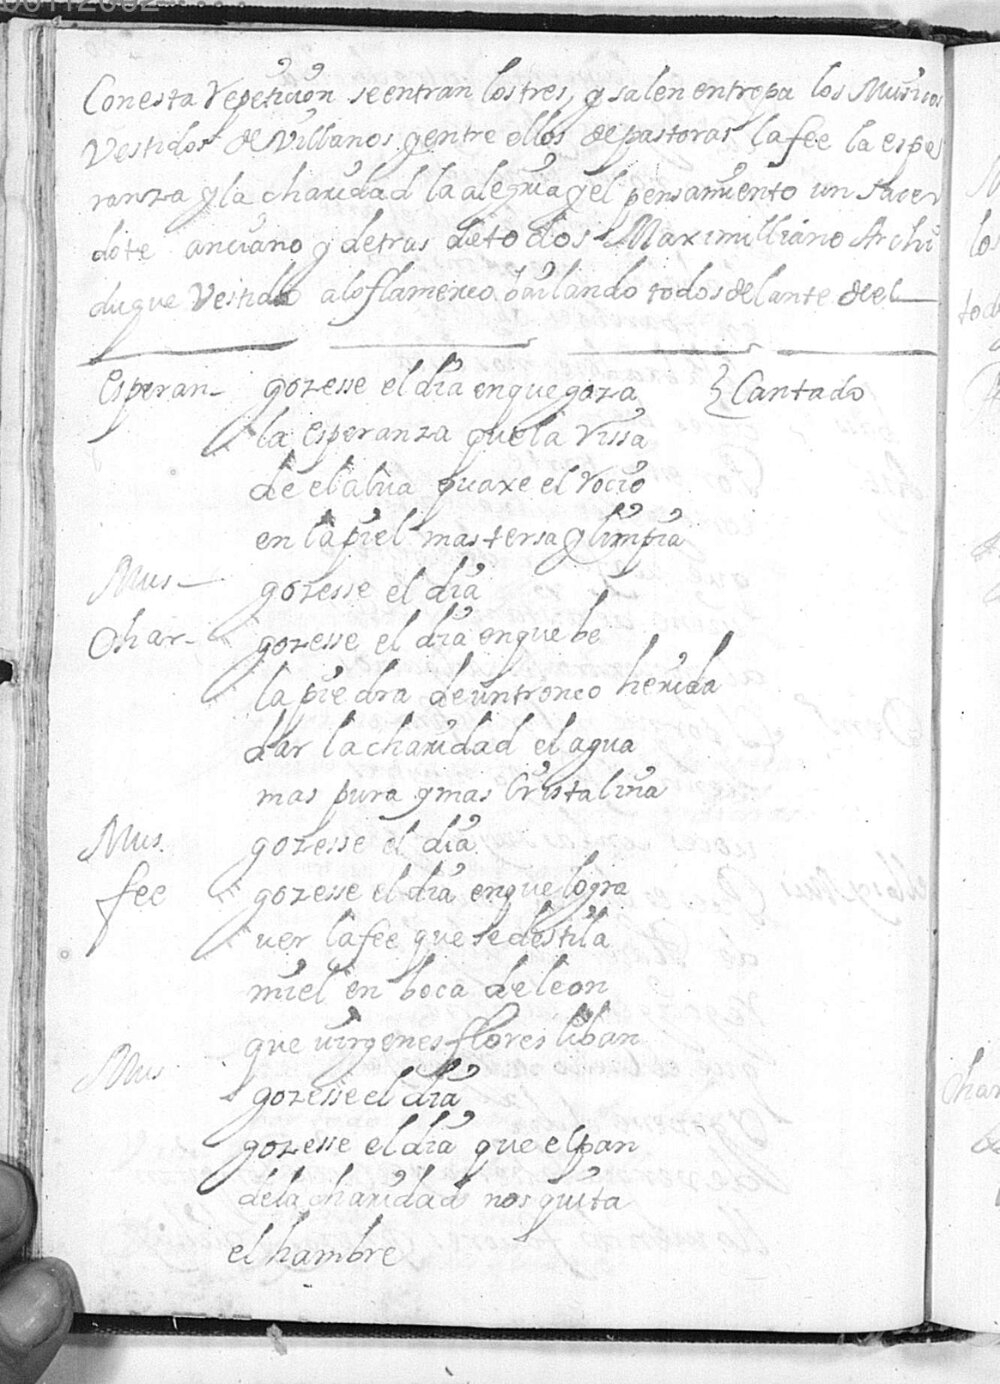 Con esta repeticion se entran los tres, y salen entropa los Musicos
vestidos de Villanos y entre ellos de pastoras la fee la espe
ranza y la charidad la alegria y el pensamiento un sacer
dote anciano y detras de todos Maximilliano Archi
duque Vestido a lo flamenco bailando todos delante de el
Esperan- gozesse el dia en que goza } Cantado
la Esperanza que la rissa
de el alua quaxe el rocio
en la piel mas tersa y limpia
Mus- gozesse el dia
Char- gozesse el dia en que be
la piedra de un tronco herida
dar la charidad el agua
mas pura y mas Cristalina
Mus. gozesse el dia
fee gozesse el dia en que logra
uer la fee que se destila
miel en boca de leon
que uirgenes flores liban
Mus gozesse el dia
gozesse el dia que el pan
de la charidad nos quita
el hambre